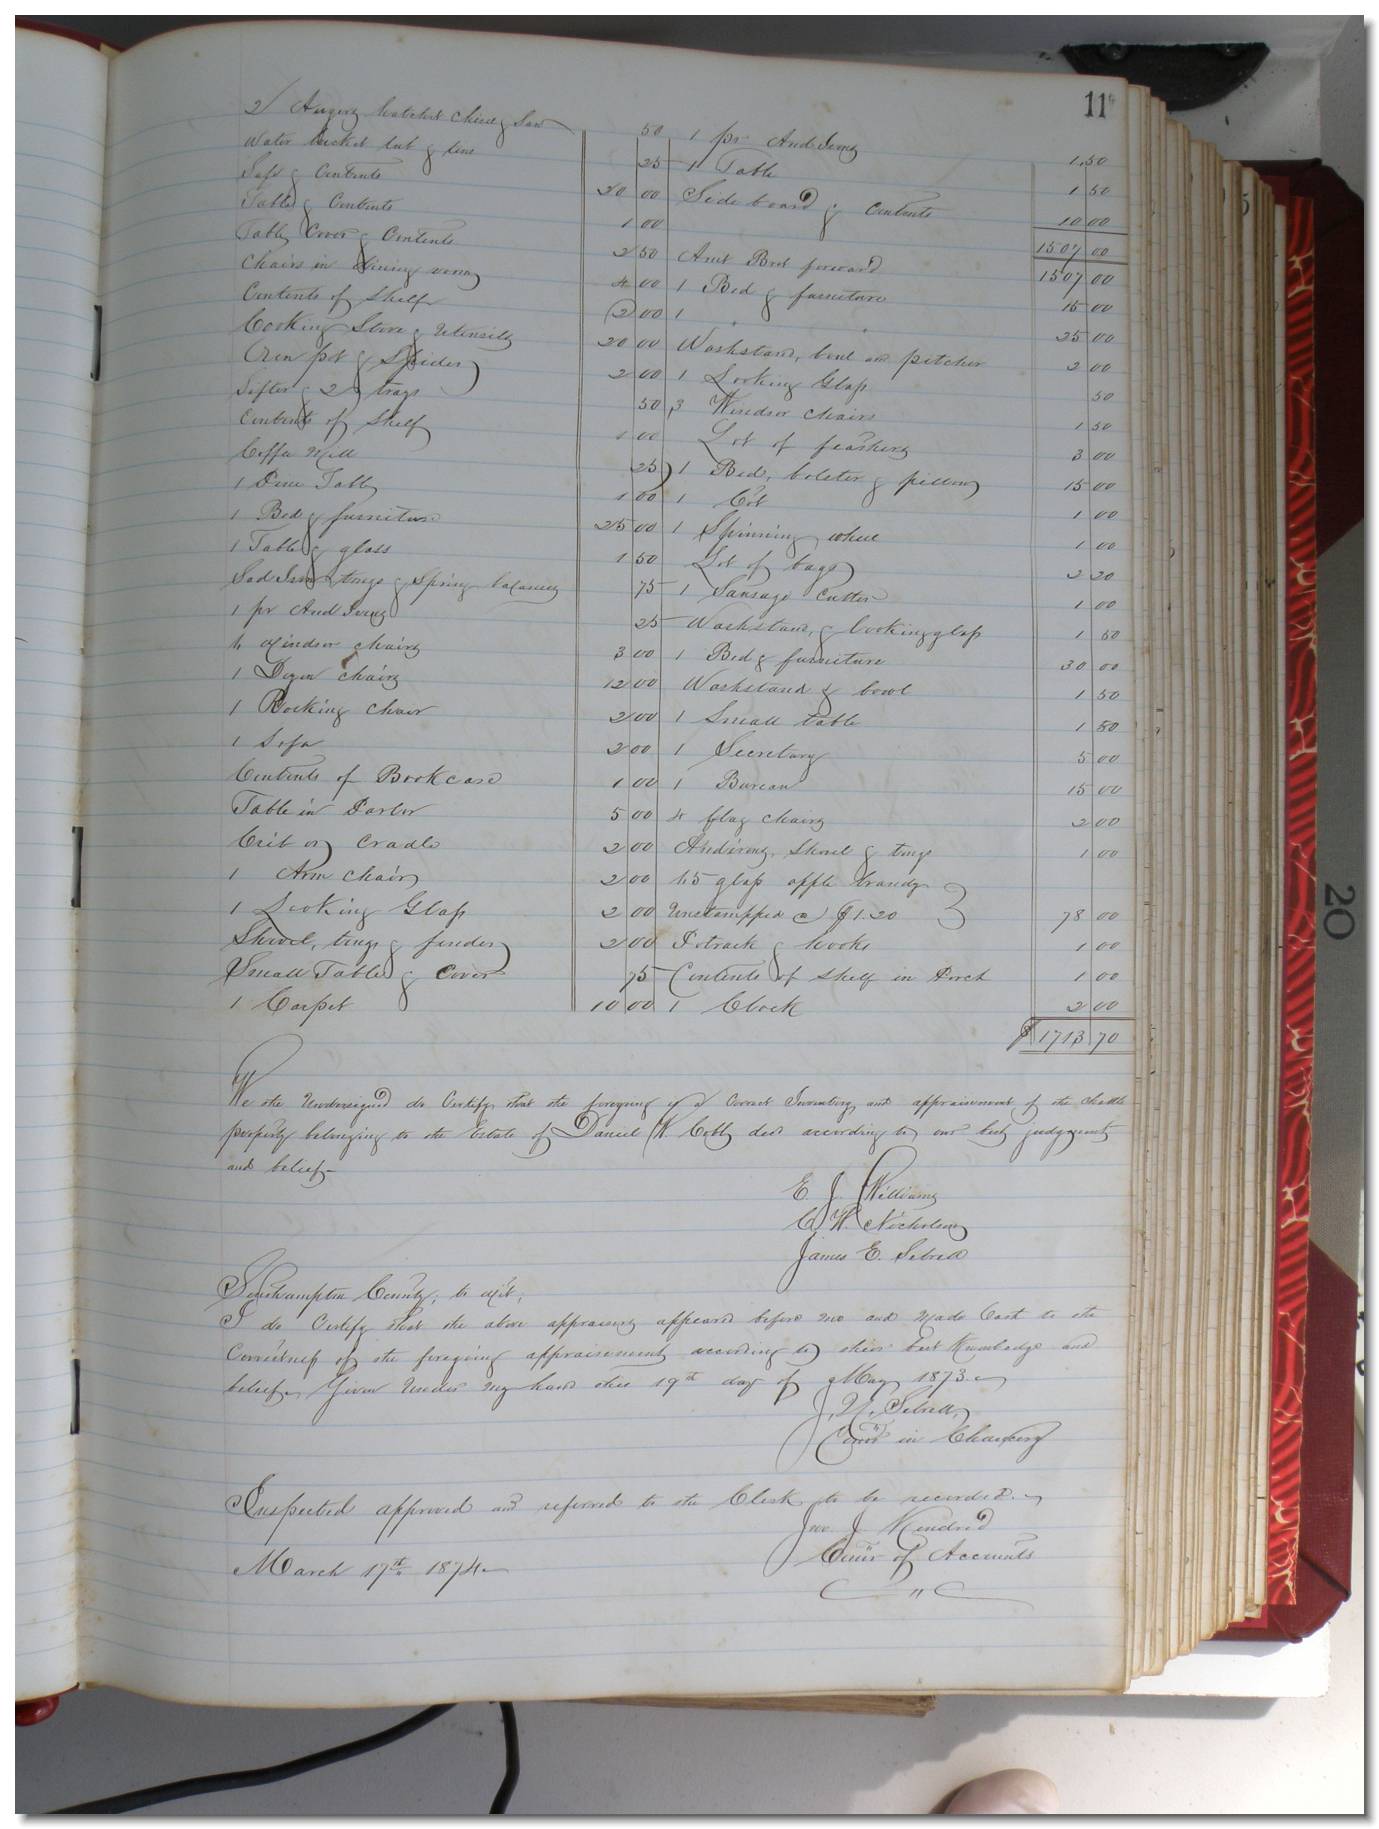 11
2 Augers hatchet chisel & Saw 50
Water bucket tub & tins 25
Safe & Contents 20 00
Table & Contents 1 00
Table Cover & Contents 2 50
Chairs in dining room 4 00
Contents of Shelf 2 00
Cooking Stove & Utensils 20 00
Oven pot & Spider 2 00
Sifter & 2 trays 50
Contents of Shelf 1 00
Coffee Mill 25
1 Pine Table 1 00
1 Bed & furniture 25 00
1 Table & glass 1 50
Sad Iron tongs & Spring balances 75
1 pr And Irons 25
4 Windsor chairs 3 00
1 Dozen chairs 12 00
1 Rocking chair 2 00
1 Sofa 2 00
Contents of Bookcase 1 00
Table in Parlor 5 00
Crib or Cradle 2 00
1 Arm chair 2 00
1 Looking Glass 2 00
Shovel, tongs & fender 2 00
Small Table & Cover 75
1 Carpet 10 00
1 pr And Irons 1.50
1 Table 1 50
Side board & Contents 10 00
1507 00
Amt Brot forward 1507 00
1 Bed & furniture 15 00
1 " " 25 00
Washstand, bowl and pitcher 2 00
1 Looking Glass 50
3 Windsor chairs 1 50
Lot of feathers 3 00
1 Bed, bolster & pillows 15 00
1 Cot 1 00
1 Spinning wheel 1 00
Lot of bags 2 20
1 Sausage Cutter 1 00
Washstand, & looking glass 1 50
1 Bed & furniture 30 00
Washstand & bowl 1 50
1 Small table 1 50
1 Secretary 5 00
1 Bureau 15 00
4 flag chairs 2 00
Andirons, Shovel & tongs 1 00
65 glass apple brandy
Unstampped @ $1.20 78 00
Potrack & hooks 1 00
Contents of Shelf in Porch 1 00
1 Clock 2 00
$1713 70
We the Undersigned do Certify that the foregoing is a Correct Inventory and appraisement of the chattle
property belonging to the Estate of Daniel W. Cobb decd according to our best judgment
and belief.
E. J. Williams
C. W. Nicholson
James E. Sebrell
Southampton County, to wit;
I do Certify that the above appraisers appeared before me and Made Oath to the
Correctness of the foregoing appraisement according to their best Knowledge and
belief. Given Under My hand this 19th day of May 1873.
J. N. Sebrell,
Comr in Chancery
Inspected approved and referred to the Clerk to be recorded.
Jno. J. Kindred
Comr of Accounts
March 17th 1874
"
20